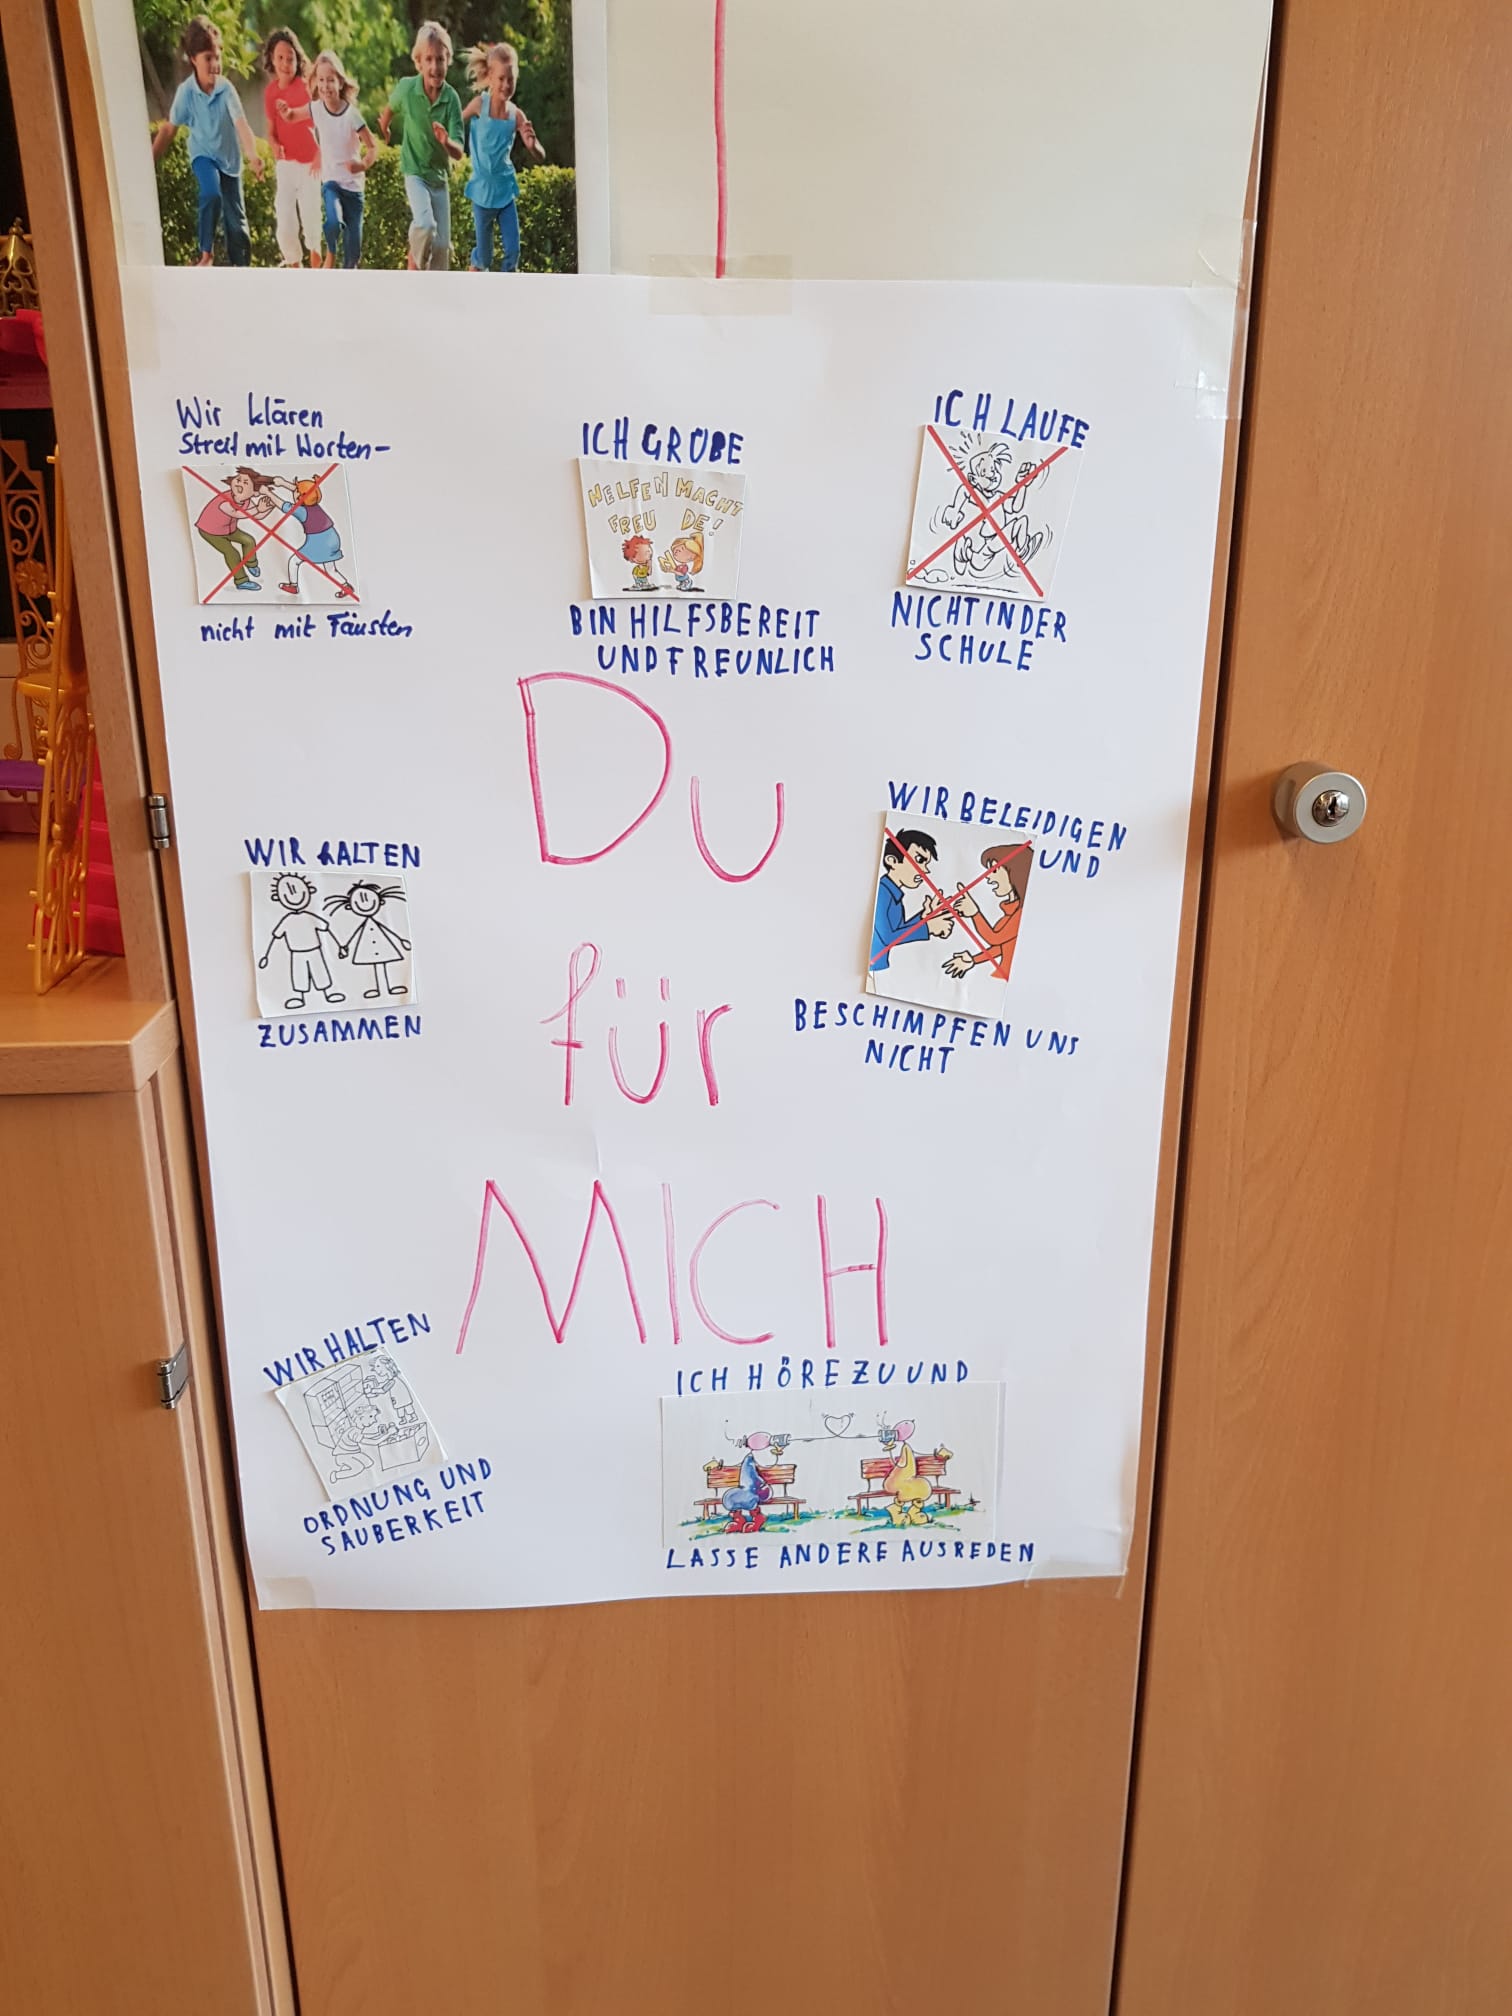 Wir klären
Streit mit Worten-
nicht mit Fäusten
ICH GRÜBE
HELFEN MACHT
FREU DE!
BIN HILFSBEREIT
UND FREUNLICH
ICH LAUFE
NICHT IN DER
SCHULE
Du
für
MICH
WIR HALTEN
ZUSAMMEN
WIR BELEIDIGEN
UND
BESCHIMPFEN UNS
NICHT
WIR HALTEN
ORDNUNG UND
SAUBERKEIT
ICH HÖRE ZU UND
LASSE ANDERE AUSREDEN